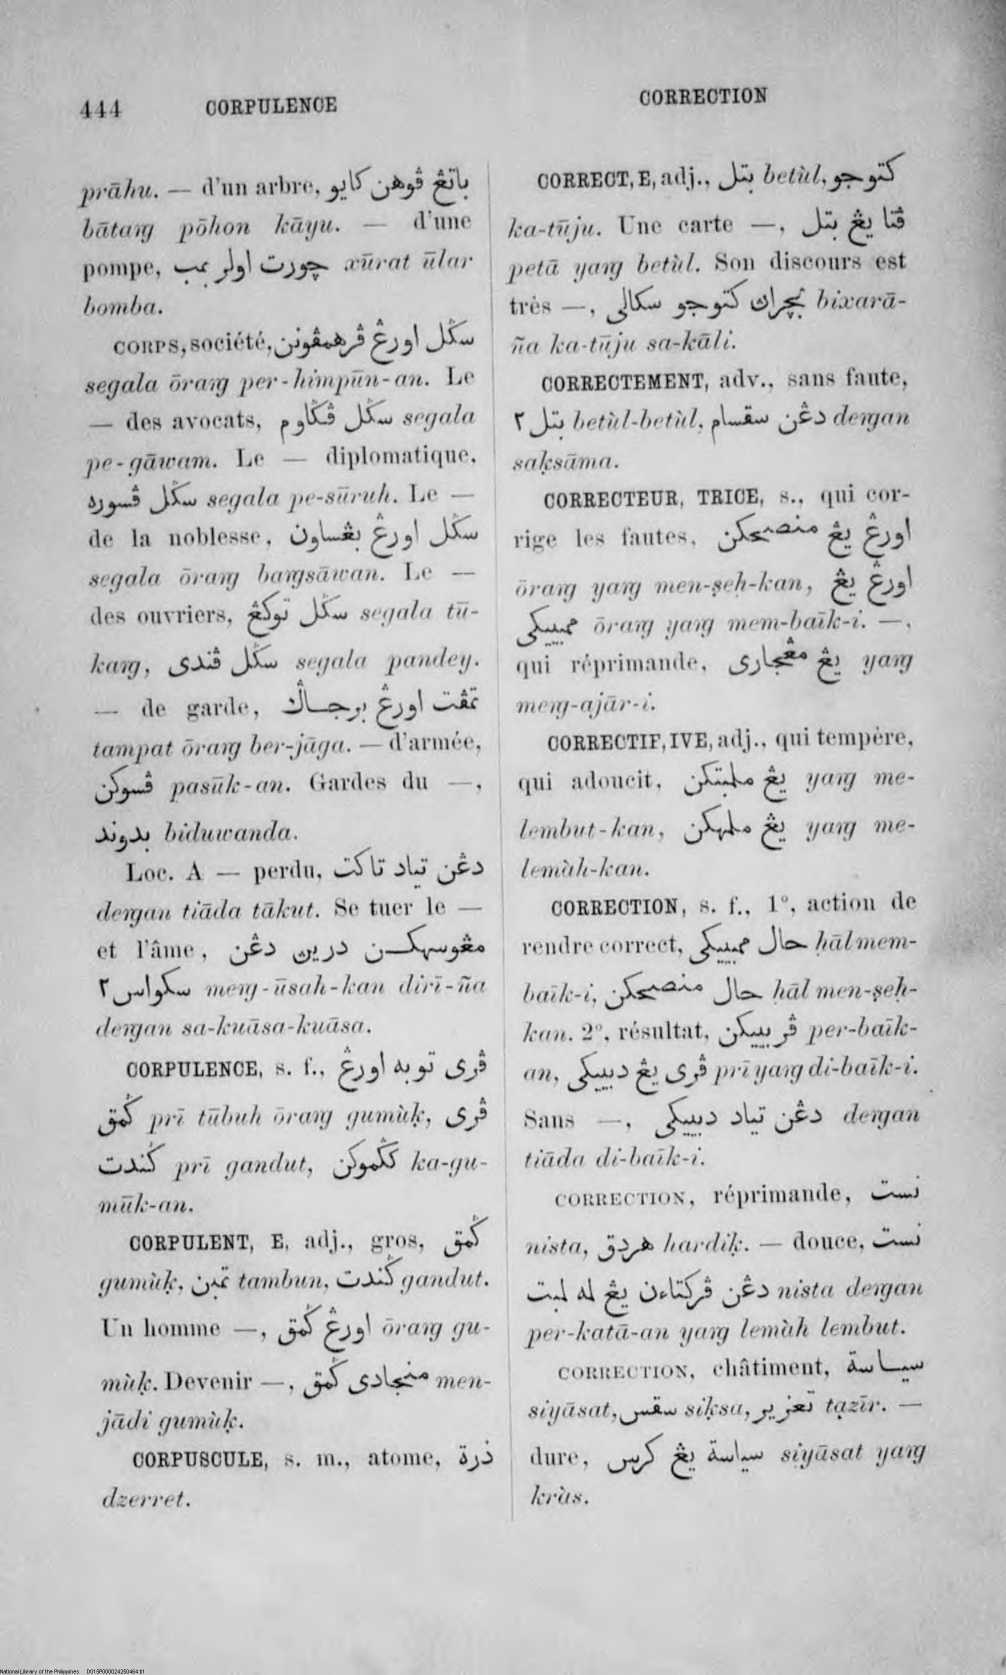 444 CORPULENCE
CORRECTION
prāhu. — d'un arbre, باتڠ ڤوهن كايو
bātaŋ pōhon kāyu. — d'une
pompe, چورت اولر بمب xūrat ūlar
bomba.
CORPS, société, سڬل اورڠ ڤرهمڤونن
segala ōraŋ per-himpūn-an. Le
— des avocats, سڬل ڤڬاوم segala
pe-gāwam. Le — diplomatique,
سڬل ڤسوره segala pe-sūruh. Le —
de la noblesse, سڬل اورڠ بڠساون
segala ōraŋ baŋsāwan. Le —
des ouvriers, سڬل توكڠ segala tū-
kaŋ, سڬل ڤندى segala pandey.
— de garde, تمڤت اورڠ برجاڬ
tampat ōraŋ ber-jāga. — d'armée,
ڤسوكن pasūk-an. Gardes du —,
بدوند biduwanda.
Loc. A — perdu, دڠن تياد تاكت
deŋan tiāda tākut. Se tuer le —
et l'âme, مڠوسهكن درين دڠن
سكواس٢ meŋ-ūsah-kan dirī-ña
deŋan sa-kuāsa-kuāsa.
CORPULENCE, s. f., ڤرى توبه اورڠ
ݢمق prī tūbuh ōraŋ gumùḳ, ڤرى
ݢندت prī gandut, كݢموكن ka-gu-
mūk-an.
CORPULENT, E, adj., gros, ݢمق
gumùḳ, تمبن tambun, ݢندت gandut.
Un homme —, اورڠ ݢمق ōraŋ gu-
mùḳ. Devenir —, منجادى ݢمق men-
jādi gumùḳ.
CORPUSCULE, s. m., atome, ذرة
dzerret.
CORRECT, E, adj., بتل betùl, كتوجو
ka-tūju. Une carte —, ڤتا يڠ بتل
petā yaŋ betùl. Son discours est
très —, بچران كتوجو سكالى bixarā-
ña ka-tūju sa-kāli.
CORRECTEMENT, adv., sans faute,
بتل ٢ betùl-betùl, دڠن سقسام deŋan
saḳsāma.
CORRECTEUR, TRICE, s., qui cor-
rige les fautes, اورڠ يڠ منصحكن
ōraŋ yaŋ men-ṣeḥ-kan, اورڠ يڠ
ممبيكى ōraŋ yaŋ mem-baīk-i. —,
qui réprimande, يڠ مڠجارى yaŋ
meŋ-ajār-i.
CORRECTIF, IVE, adj., qui tempère,
qui adoucit, يڠ ملمبتكن yaŋ me-
lembut-kan, يڠ ملمهكن yaŋ me-
lemùh-kan.
CORRECTION, s. f., 1°, action de
rendre correct, حال ممبيكى ḥāl mem-
baīk-i, حال منصحكن ḥāl men-ṣeḥ-
kan. 2°, résultat, ڤربيكن per-baīk-
an, ڤرى يڠ دبيكى prī yaŋ di-baīk-i.
Sans —, دڠن تياد دبيكى deŋan
tiāda di-baīk-i.
CORRECTION, réprimande, نست
nista, هردق hardiḳ. — douce, نست
دڠن ڤركتاءن يڠ له لمبت nista deŋan
per-katā-an yaŋ lemùh lembut.
CORRECTION, châtiment, سياسة
siyāsat, سقس siḳsa, تعزير tạzīr. —
dure, سياسة يڠ كرس siyāsat yaŋ
kràs.
National Library of the Philippines